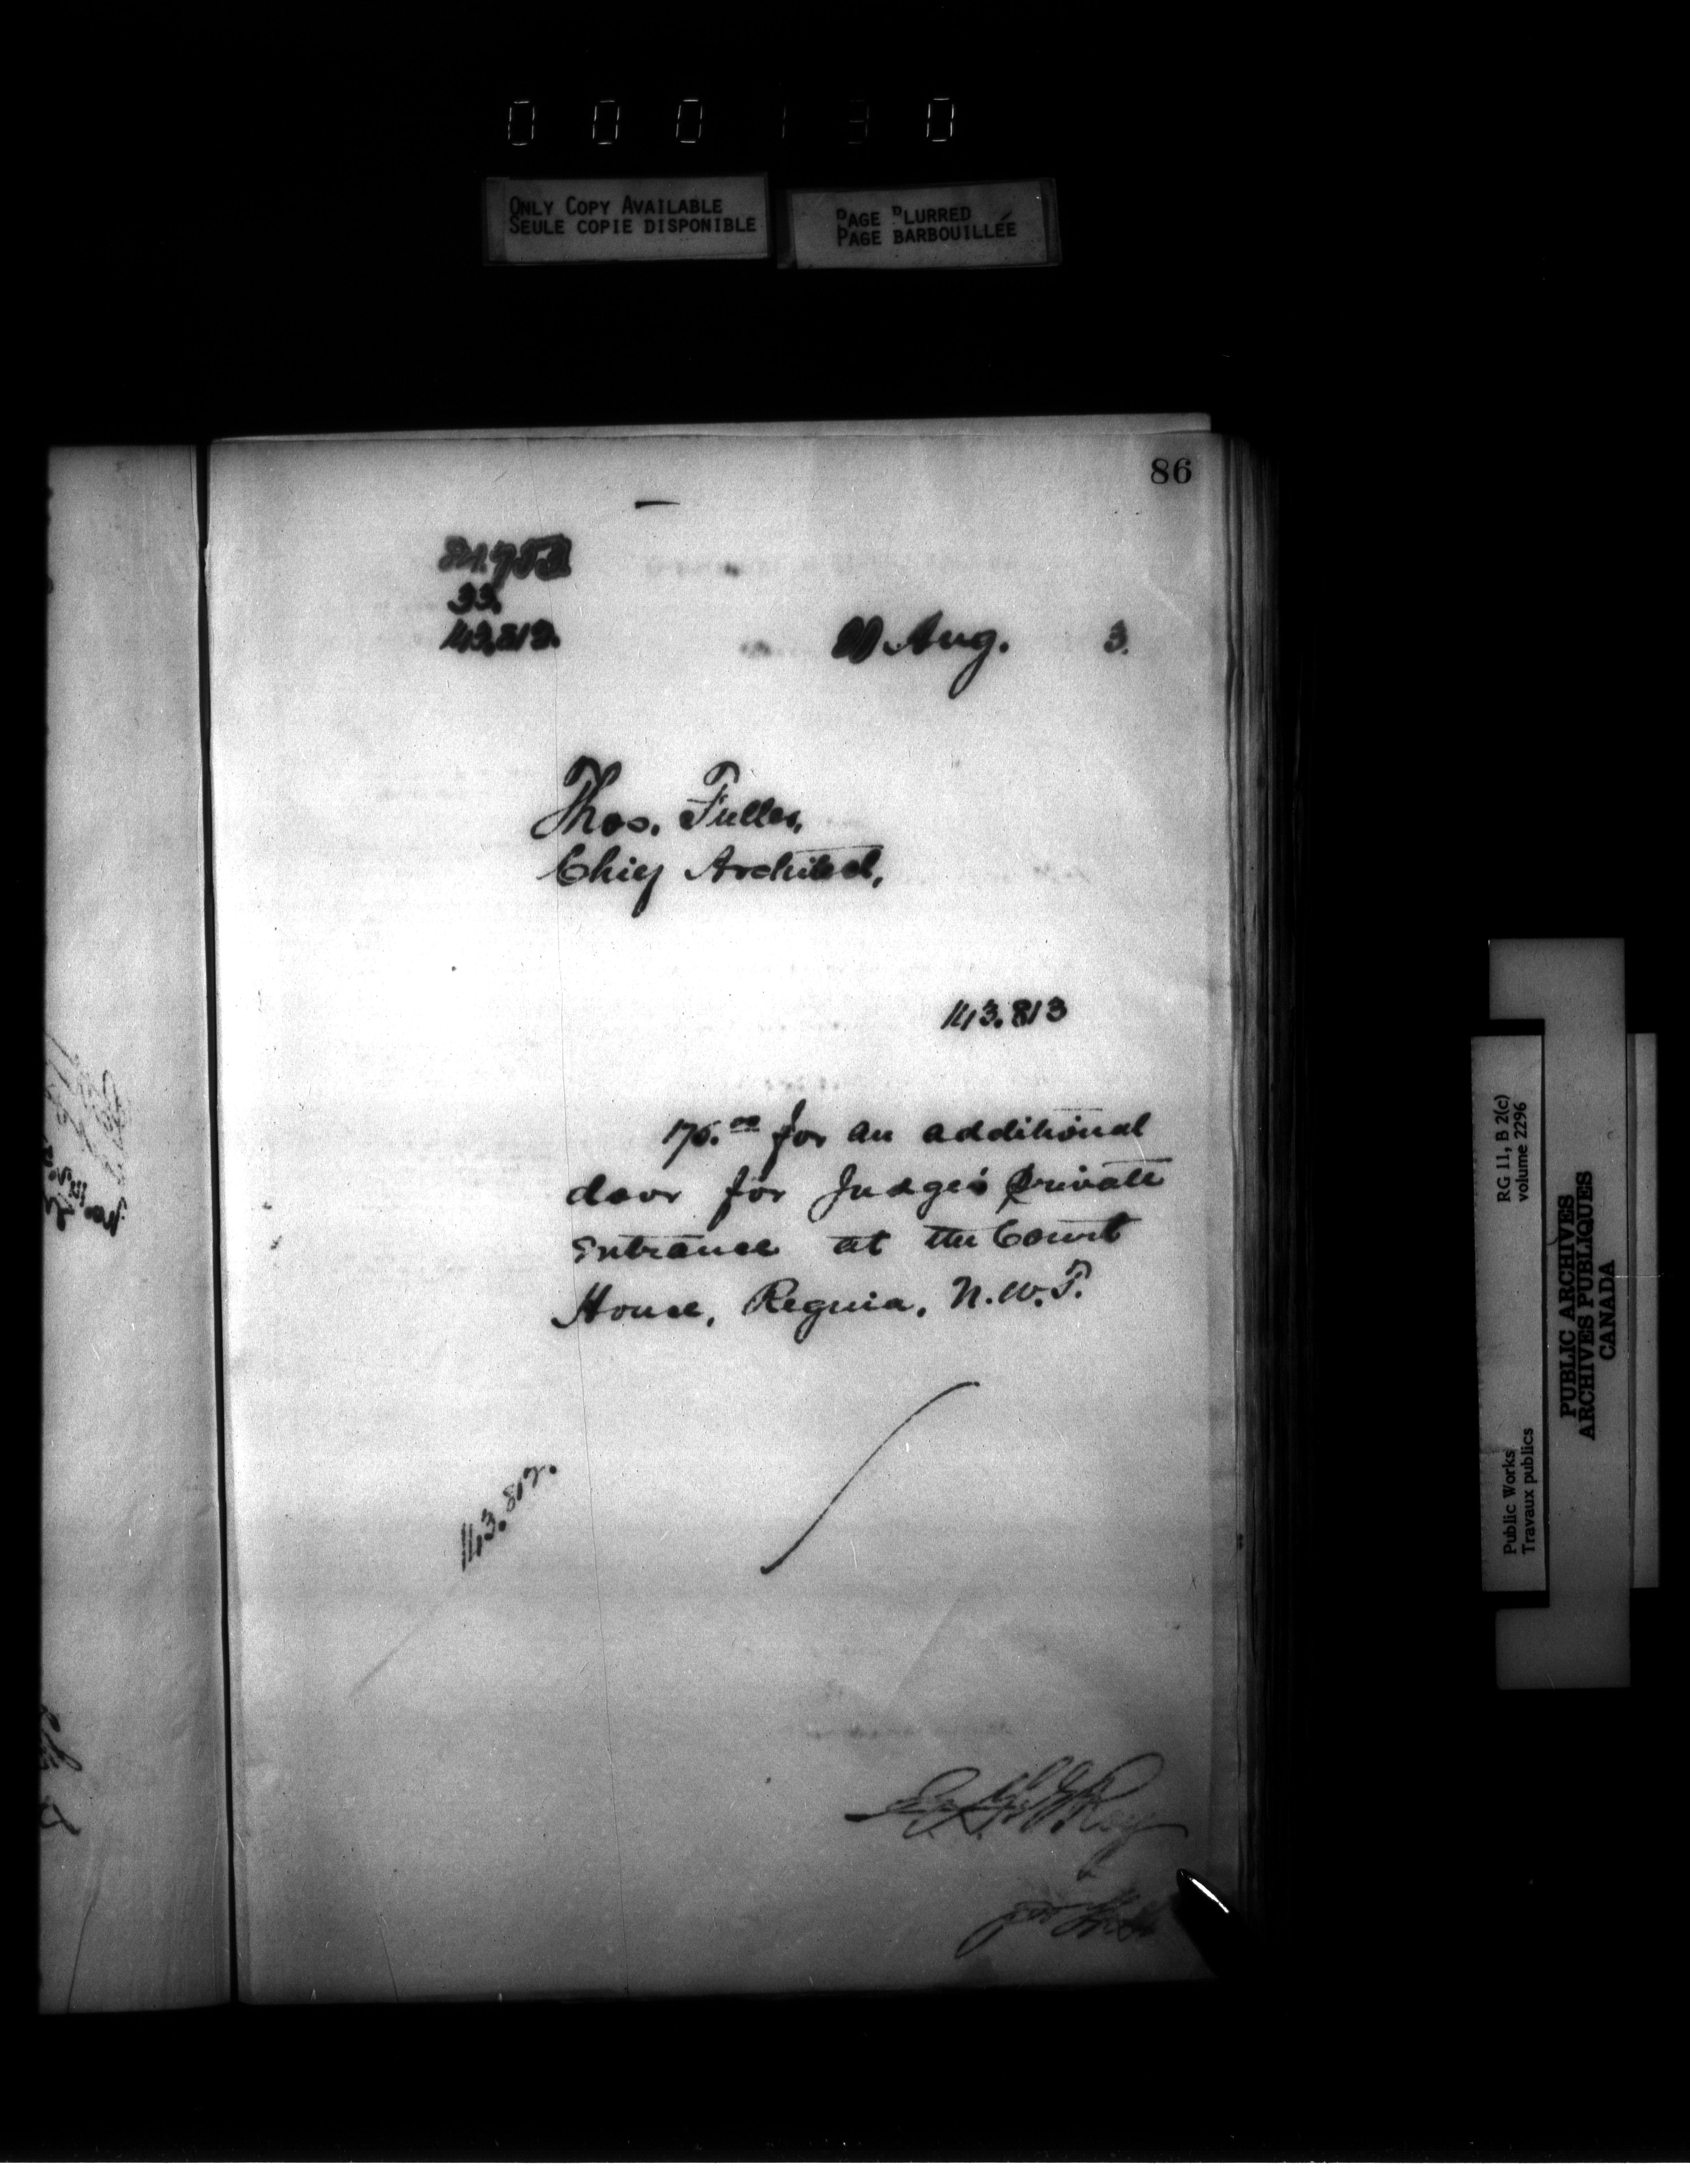 0 0 0 1 3 0
ONLY COPY AVAILABLE
SEULE COPIE DISPONIBLE
PAGE BLURRED
PAGE BARBOUILLÉE
86
33.
143,813.
Aug. 3.
Thos. Fuller,
Chief Architect,
143.813
175.00 for an additional
door for Judge's private
entrance at the Court
House, Regina, N.W.T.
143.812.
RG 11, B 2(c)
volume 2296
Public Works
Travaux publics
PUBLIC ARCHIVES
ARCHIVES PUBLIQUES
CANADA